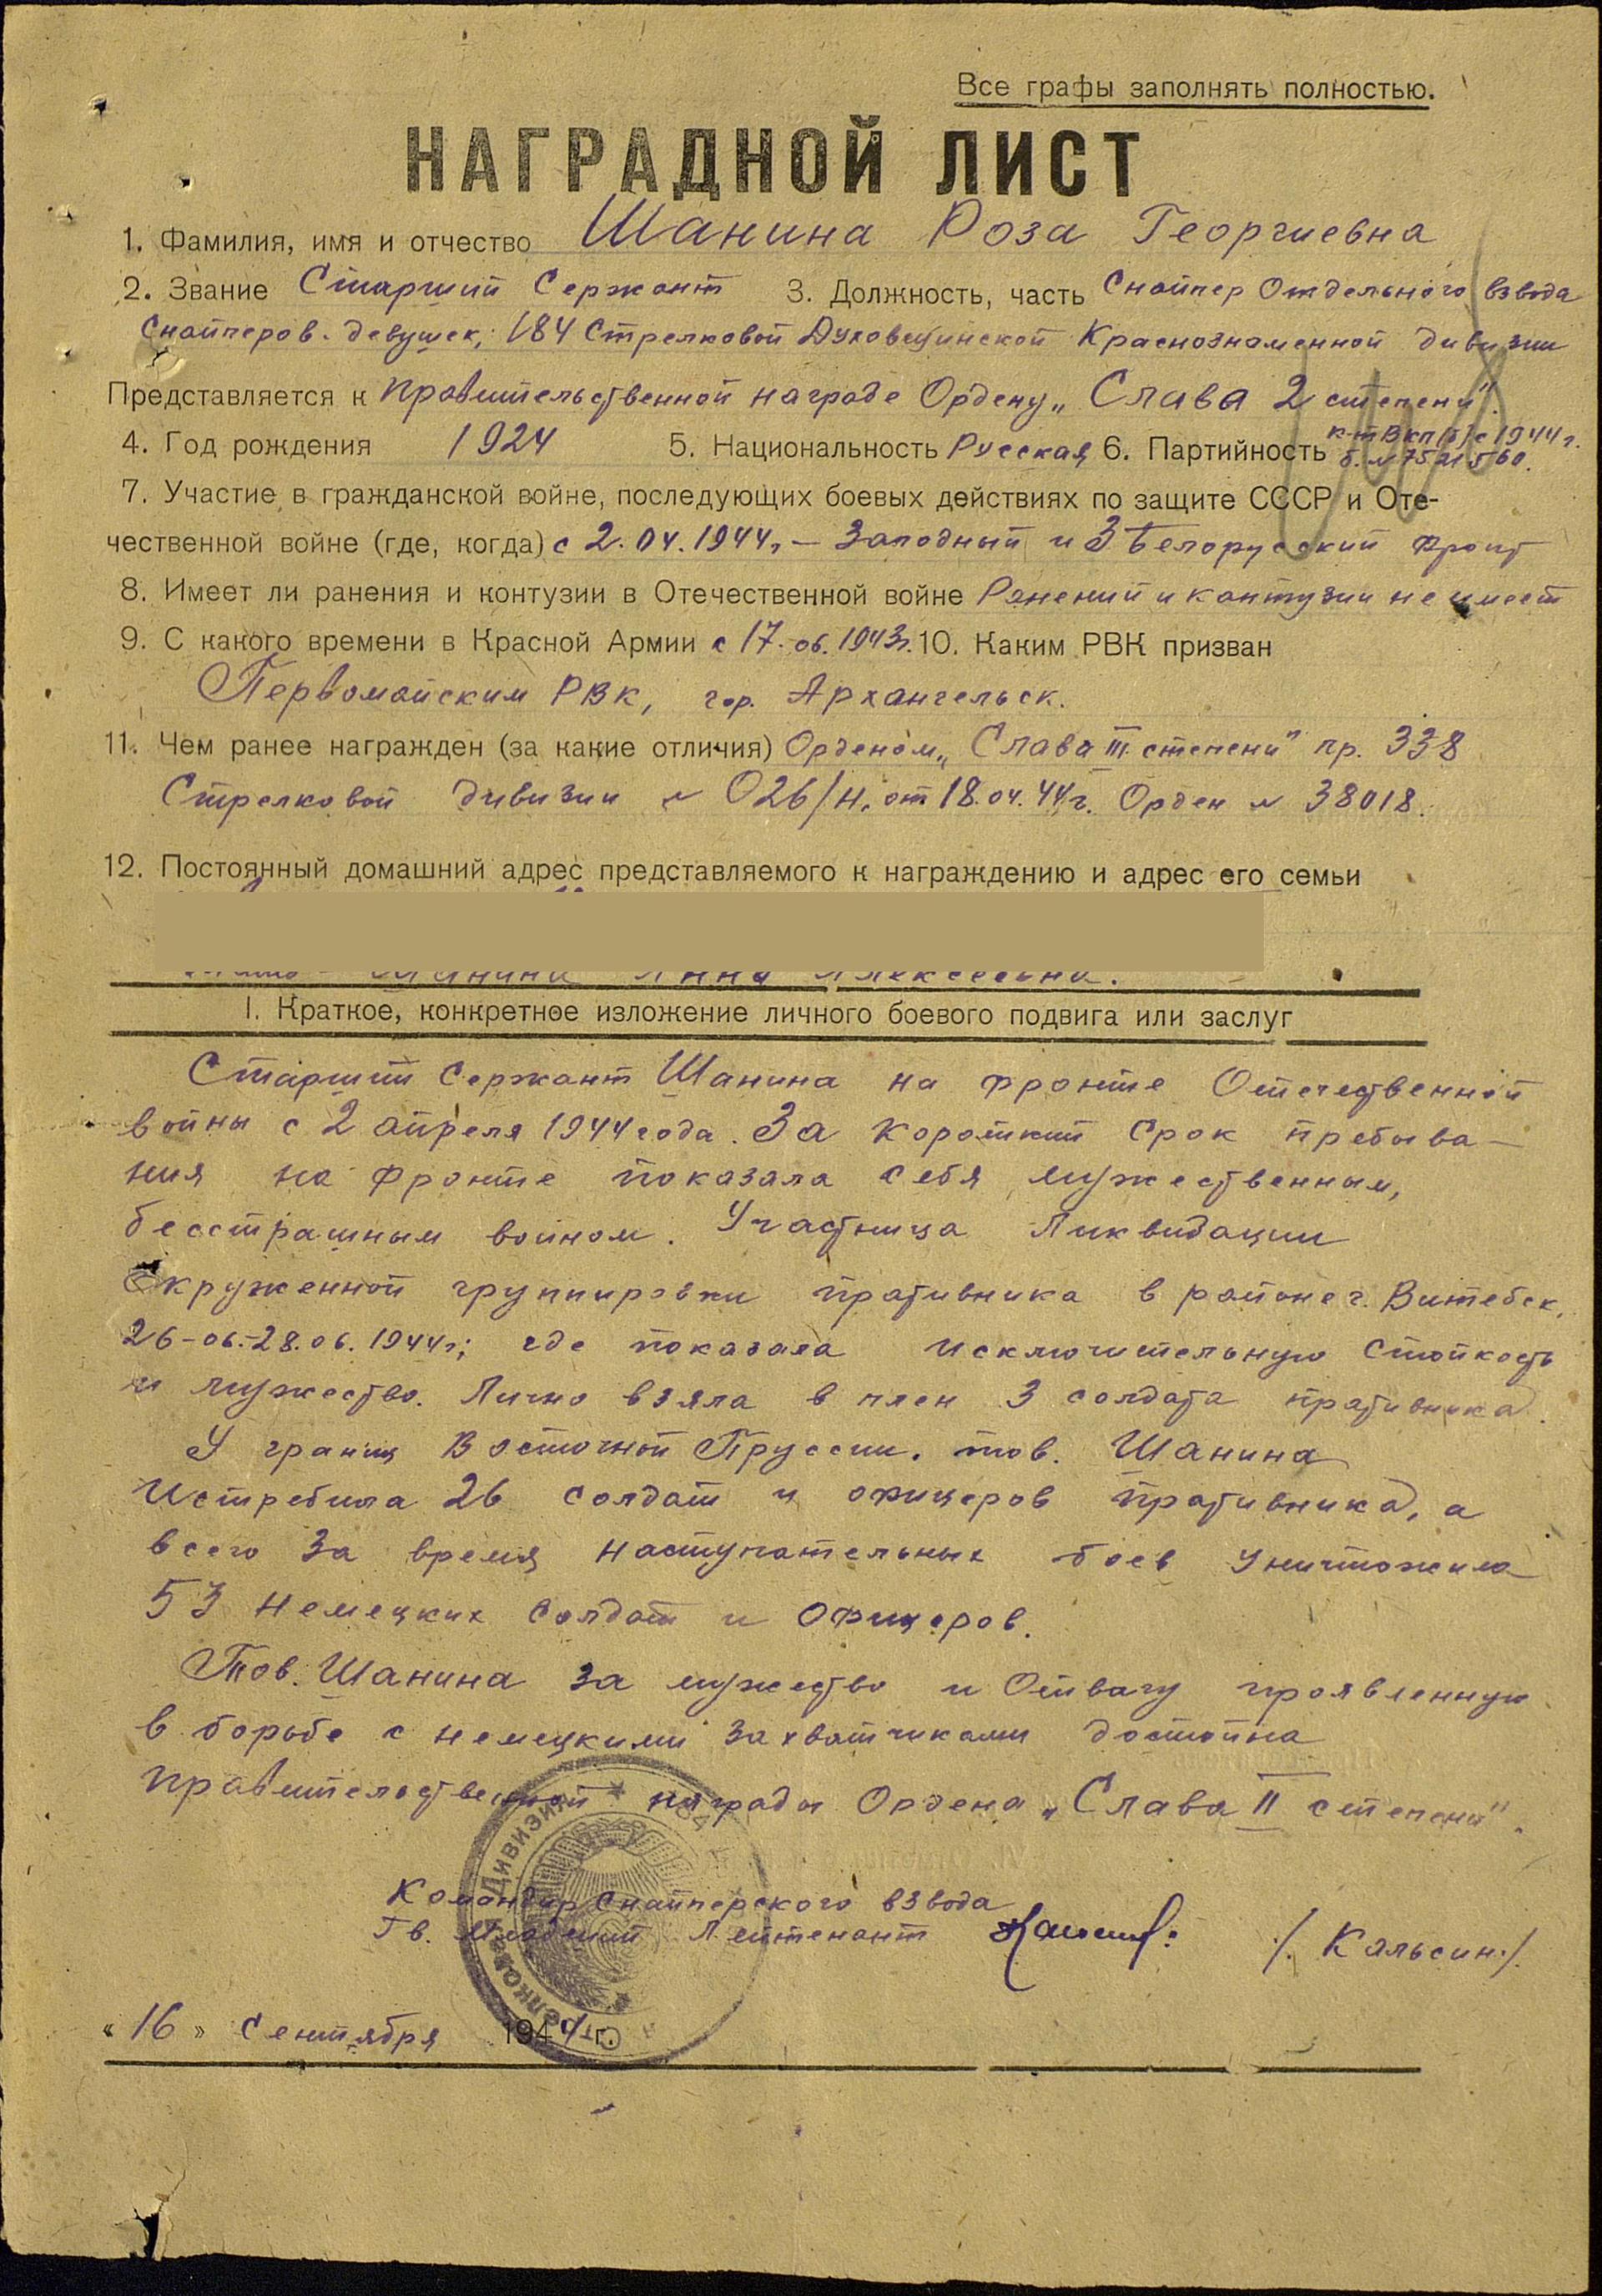 Все графы заполнять полностью.
НАГРАДНОЙ ЛИСТ
1. Фамилия, имя и отчество Шанина Роза Георгиевна
2. Звание Старший Сержант 3. Должность, часть Снайпер Отдельного взвода
Снайперов-девушек, 184 Стрелковой Духовщинской Краснознаменной дивизии
Представляется к правительственной награде Ордену „Слава 2 степени".
4. Год рождения 1924 5. Национальность Русская 6. Партийность к-т ВКП(б) с 1944 г.
б. № 7521560.
7. Участие в гражданской войне, последующих боевых действиях по защите СССР и Оте-
чественной войне (где, когда) с 2.04.1944г. – Западный и 3 Белорусский фронт
8. Имеет ли ранения и контузии в Отечественной войне Ранений и контузии не имеет
9. С какого времени в Красной Армии с 17.06.1943г. 10. Каким РВК призван
Первомайским РВК, гор. Архангельск.
11. Чем ранее награжден (за какие отличия) Орденом „Слава III степени" пр. 338
Стрелковой дивизии № 026/н. от 18.04.44г. Орден № 38018.
12. Постоянный домашний адрес представляемого к награждению и адрес его семьи
Шанина Анна Алексеевна.
I. Краткое, конкретное изложение личного боевого подвига или заслуг
Старший Сержант Шанина на фронте Отечественной
войны с 2 апреля 1944 года. За короткий срок пребыва-
ния на фронте показала себя мужественным,
бесстрашным воином. Участница Ликвидации
Окруженной группировки противника в районе г. Витебск,
26-06-28.06.1944г; где показала исключительную стойкость
и мужество. Лично взяла в плен 3 солдата противника.
У границ Восточной Пруссии. тов. Шанина
Истребила 26 солдат и офицеров противника, а
всего за время наступательных боев уничтожила
53 немецких солдат и офицеров.
Тов. Шанина за мужество и Отвагу проявленную
в борьбе с немецкими захватчиками достойна
правительственной награды Ордена „Слава II степени".
Командир Снайперского взвода
Гв. Младший Лейтенант /Кальсин./
«16» Сентября 1944 г.